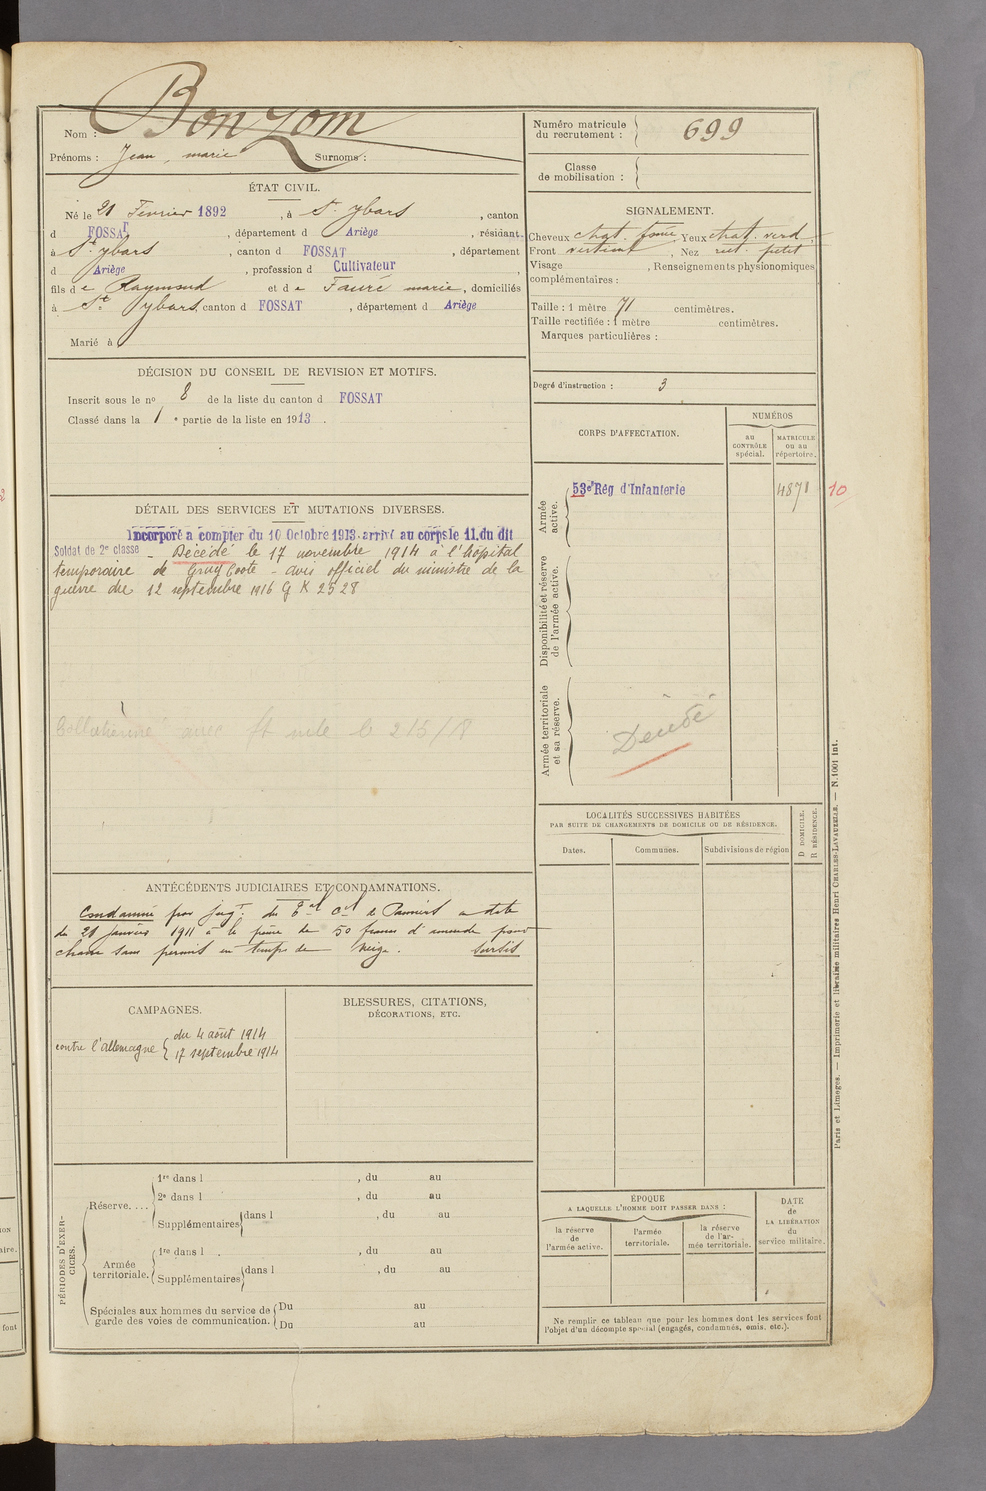 Nom : Bonzom
Prénoms : Jean, marie Surnoms :
ÉTAT CIVIL.
Né le 21 Février 1892, à St. ybars, canton
d FOSSAT, département d Ariège, résidant
à St ybars, canton d FOSSAT, département
d Ariège, profession d Cultivateur,
fils de Raymond et de Fauré marie, domiciliés
à St. ybars, canton d FOSSAT, département d Ariège
Marié à
DÉCISION DU CONSEIL DE REVISION ET MOTIFS.
Inscrit sous le no 8 de la liste du canton d FOSSAT
Classé dans la 1e partie de la liste en 1913.
DÉTAIL DES SERVICES ET MUTATIONS DIVERSES.
Incorporé a compter du 10 Octobre 1913. arrivé au corps le 11. du dit
Soldat de 2e classe - Décédé le 17 novembre 1914 à l'hôpital
temporaire de - avis officiel du ministre de la
guerre du 12 septembre 1916 G K 2528
avec le 215/18
ANTÉCÉDENTS JUDICIAIRES ET CONDAMNATIONS.
Condamné par jugt. du de Pamiers a date
du 21 Janvier 1911 à la peine de 50 francs d'amende pour
chasse sans permis en temps de neige. Sursis
CAMPAGNES.
contre l'allemagne { du 4 août 1914
17 septembre 1914
BLESSURES, CITATIONS,
DÉCORATIONS, ETC.
PÉRIODES D'EXERCICES.
Réserve....
1re dans l , du au
2e dans l , du au
Supplémentaires dans l , du au
Armée
territoriale.
1re dans l , du au
Supplémentaires dans l , du au
Spéciales aux hommes du service de
garde des voies de communication.
Du au
Du au
Numéro matricule
du recrutement : 699
Classe
de mobilisation :
SIGNALEMENT.
Cheveux chat. foncé Yeux chat. verd.
Front vertical, Nez rect. petit
Visage , Renseignements physionomiques
complémentaires :
Taille : 1 mètre 71 centimètres.
Taille rectifiée : 1 mètre centimètres.
Marques particulières :
Degré d'instruction : 3
CORPS D'AFFECTATION.
NUMÉROS
au
CONTRÔLE
spécial.
MATRICULE
ou au
répertoire.
Armée
active.
53e Rég d'Infanterie 4871 10
Disponibilité et réserve
de l'armée active.
Armée territoriale
et sa réserve.
Décédé
LOCALITÉS SUCCESSIVES HABITÉES
PAR SUITE DE CHANGEMENTS DE DOMICILE OU DE RÉSIDENCE.
Dates. Communes. Subdivisions de région
D DOMICILE.
R RÉSIDENCE.
ÉPOQUE
A LAQUELLE L'HOMME DOIT PASSER DANS :
la réserve
de
l'armée active.
l'armée
territoriale.
la réserve
de l'ar-
mée territoriale.
DATE
de
LA LIBÉRATION
du
service militaire.
Ne remplir ce tableau que pour les hommes dont les services font
l'objet d'un décompte spécial (engagés, condamnés, omis, etc.).
Paris et Limoges. — Imprimerie et librairie militaires Henri CHARLES-LAVAUZELLE. — N. 1001 int.